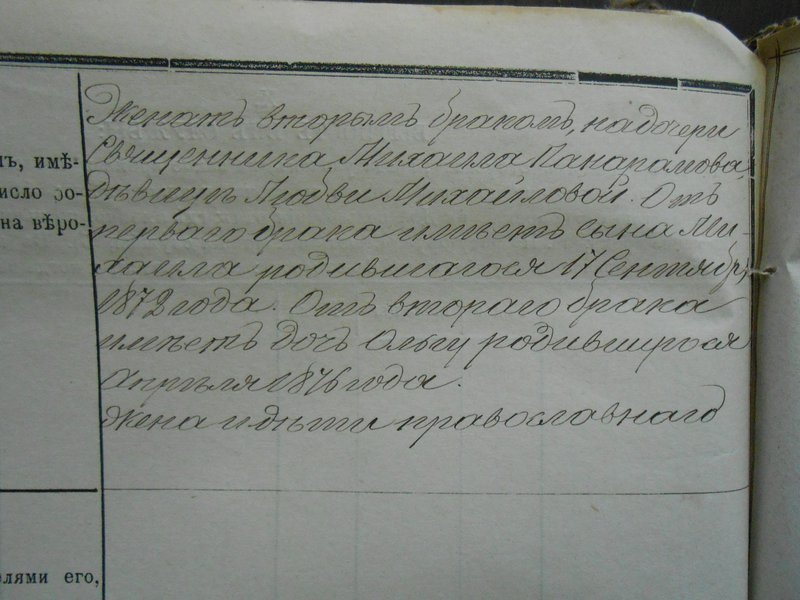 Женатъ вторымъ бракомъ, на дочери
Священника Михаила Панарамова,
дѣвицѣ Любви Михайловой. Отъ
перваго брака имѣетъ сына Ми-
хаила родившагося 17 Сентября
1872 года. Отъ втораго брака
имѣетъ дочь Ольгу родившуюся
Апрѣля 1876 года.
Жена и дѣти православнаго
ъ, имѣ-
исло ро-
на вѣро-
лями его,